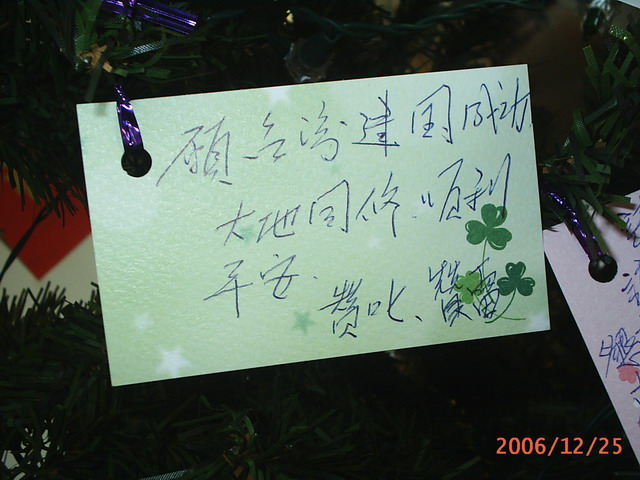 願台灣建国成功
大地同修.順利
平安.
贊叱、贊雷
2006/12/25